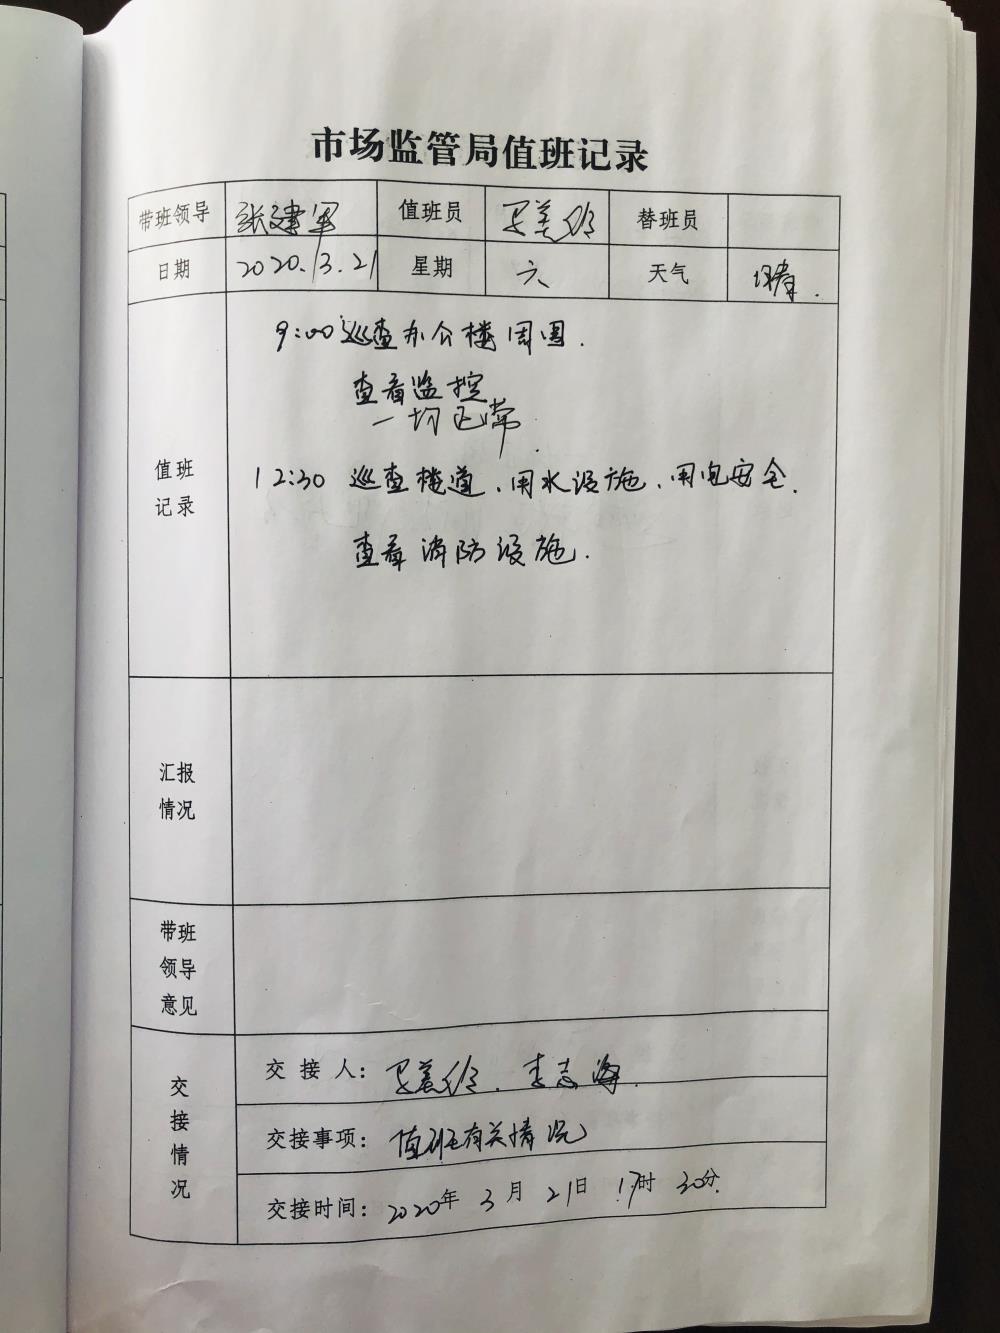 市场监管局值班记录
带班领导 张建军 值班员 替班员
日期 2020.3.21 星期 六 天气 晴.
9:00 巡查办公楼周围.
查看监控
一切正常.
值班
记录
12:30 巡查楼道、用水设施、用电安全.
查看消防设施.
汇报
情况
带班
领导
意见
交接情况
交接人: 李志海.
交接事项: 值班有关情况
交接时间: 2020年 3月 21日 17时 30分.